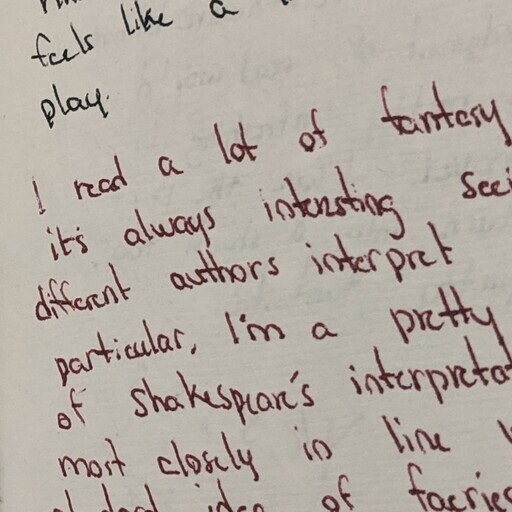 feels like a
play.
I read a lot of fantasy
it's always interesting seei
different authors interpret
particular, I'm a pretty
of Shakespeare's interpretat
most closely in line
idea of faeries